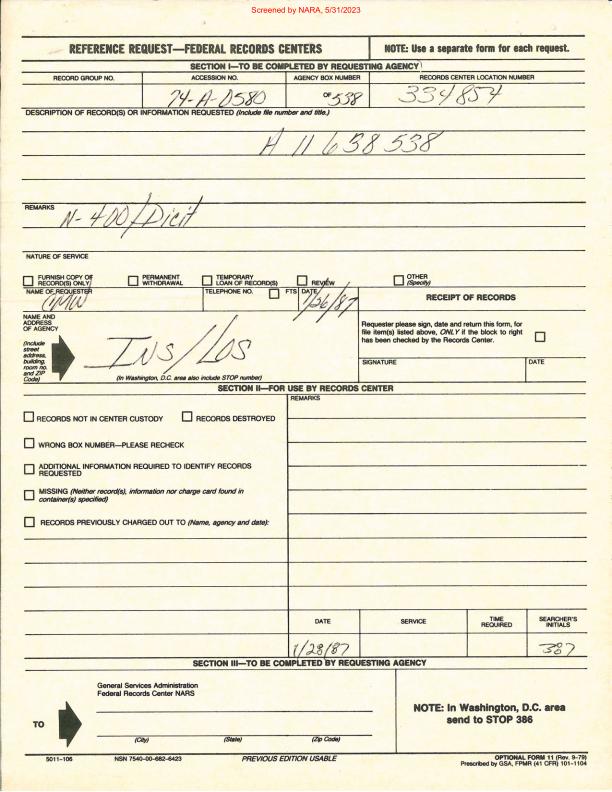 Screened by NARA, 5/31/2023
REFERENCE REQUEST—FEDERAL RECORDS CENTERS
NOTE: Use a separate form for each request.
SECTION I—TO BE COMPLETED BY REQUESTING AGENCY
RECORD GROUP NO.
ACCESSION NO.
AGENCY BOX NUMBER
RECORDS CENTER LOCATION NUMBER
74-A-0580
OF 538
334854
DESCRIPTION OF RECORD(S) OR INFORMATION REQUESTED (Include file number and title.)
A 11 638 538
REMARKS
N-400/Dicit
NATURE OF SERVICE
FURNISH COPY OF RECORD(S) ONLY
PERMANENT WITHDRAWAL
TEMPORARY LOAN OF RECORD(S)
REVIEW
OTHER (Specify)
NAME OF REQUESTER
TELEPHONE NO.
FTS
DATE
1/26/87
RECEIPT OF RECORDS
NAME AND ADDRESS OF AGENCY
(Include street address, building, room no. and ZIP Code)
INS/LOS
(In Washington, D.C. area also include STOP number)
Requester please sign, date and return this form, for
file item(s) listed above, ONLY if the block to right
has been checked by the Records Center.
SIGNATURE
DATE
SECTION II—FOR USE BY RECORDS CENTER
RECORDS NOT IN CENTER CUSTODY
RECORDS DESTROYED
WRONG BOX NUMBER—PLEASE RECHECK
ADDITIONAL INFORMATION REQUIRED TO IDENTIFY RECORDS
REQUESTED
MISSING (Neither record(s), information nor charge card found in
container(s) specified)
RECORDS PREVIOUSLY CHARGED OUT TO (Name, agency and date):
REMARKS
DATE
SERVICE
TIME REQUIRED
SEARCHER'S INITIALS
1/28/87
387
SECTION III—TO BE COMPLETED BY REQUESTING AGENCY
General Services Administration
Federal Records Center NARS
TO
(City)
(State)
(Zip Code)
NOTE: In Washington, D.C. area
send to STOP 386
5011-106
NSN 7540-00-682-6423
PREVIOUS EDITION USABLE
OPTIONAL FORM 11 (Rev. 9-79)
Prescribed by GSA, FPMR (41 CFR) 101-1104